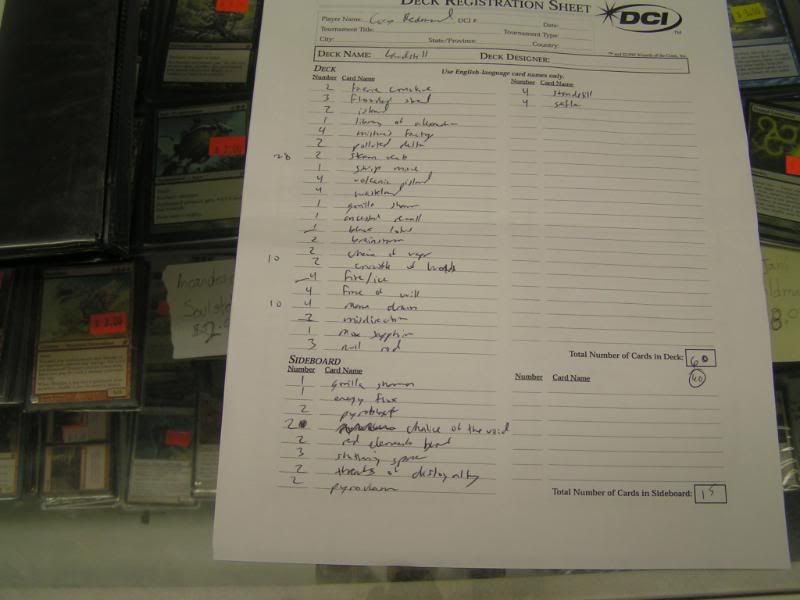 DECK REGISTRATION SHEET
DCI
TM
Player Name: DCI #: Date:
Tournament Title: Tournament Type:
City: State/Province: Country:
DECK NAME: Landstill DECK DESIGNER:
DECK Use English-language card names only.
Number Card Name Number Card Name
2 faerie conclave 4 standstill
3 flooded strand 4
2 island
1 library of
4 mishra's factory
2 polluted delta
28 2 steam vents
1 strip mine
4 volcanic island
4 wasteland
1 gorilla shaman
1 ancestral recall
1 black lotus
2 brainstorm
2 chain of vapor
10 2 crucible of worlds
4 fire/ice
4 force of will
10 4 mana drain
2 misdirection
1 mox sapphire
3 null rod
Total Number of Cards in Deck: 60
60
SIDEBOARD
Number Card Name Number Card Name
1 gorilla shaman
1 energy flux
2 pyroblast
2 chalice of the void
2 red elemental blast
3
2 threads of disloyalty
2 pyroclasm
Total Number of Cards in Sideboard: 15
Soul
$2.0
$ 3.00